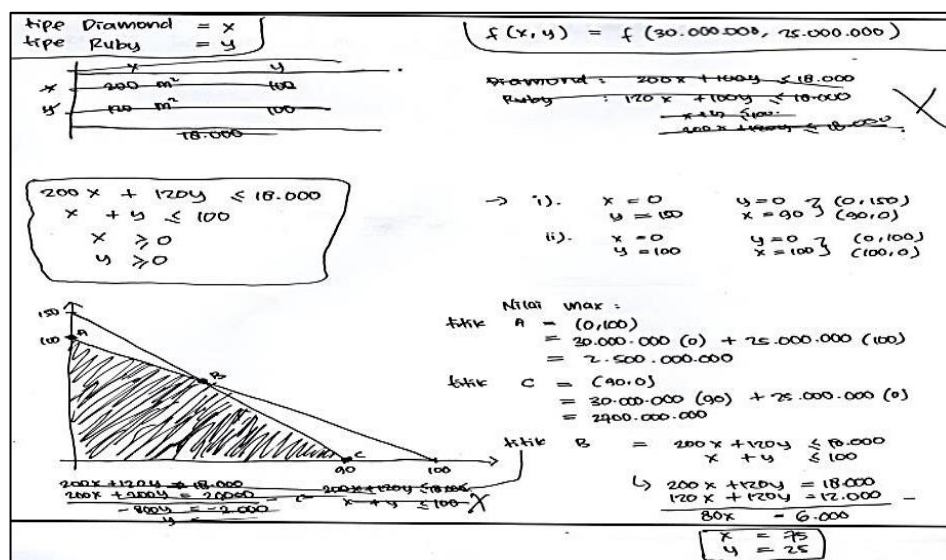 tipe Diamond = x
tipe Ruby = y
x y
x 200 m² 100
y 120 m² 100
18.000
f(x,y) = f(30.000.000, 25.000.000)
Diamond : 200x + 100y ≤ 18.000
Ruby : 120x + 100y ≤ 18.000
x + y ≤ 100
200x + 120y ≤ 18.000
200x + 120y ≤ 18.000
x + y ≤ 100
x ≥ 0
y ≥ 0
→ i). x = 0 y = 0 } (0,150)
y = 150 x = 90 } (90,0)
ii). x = 0 y = 0 } (0,100)
y = 100 x = 100 } (100,0)
150
100
A
B
C
90 100
Nilai max :
titik A = (0,100)
= 30.000.000 (0) + 25.000.000 (100)
= 2.500.000.000
titik C = (90,0)
= 30.000.000 (90) + 25.000.000 (0)
= 2700.000.000
titik B = 200x + 120y ≤ 18.000
x + y ≤ 100
↳ 200x + 120y = 18.000
120x + 120y = 12.000 -
80x = 6.000
x = 75
y = 25
200x + 120y = 18.000
200x + 200y = 20000 -
-800y = -2.000
y =
200x + 120y ≤ 18.000
x + y ≤ 100